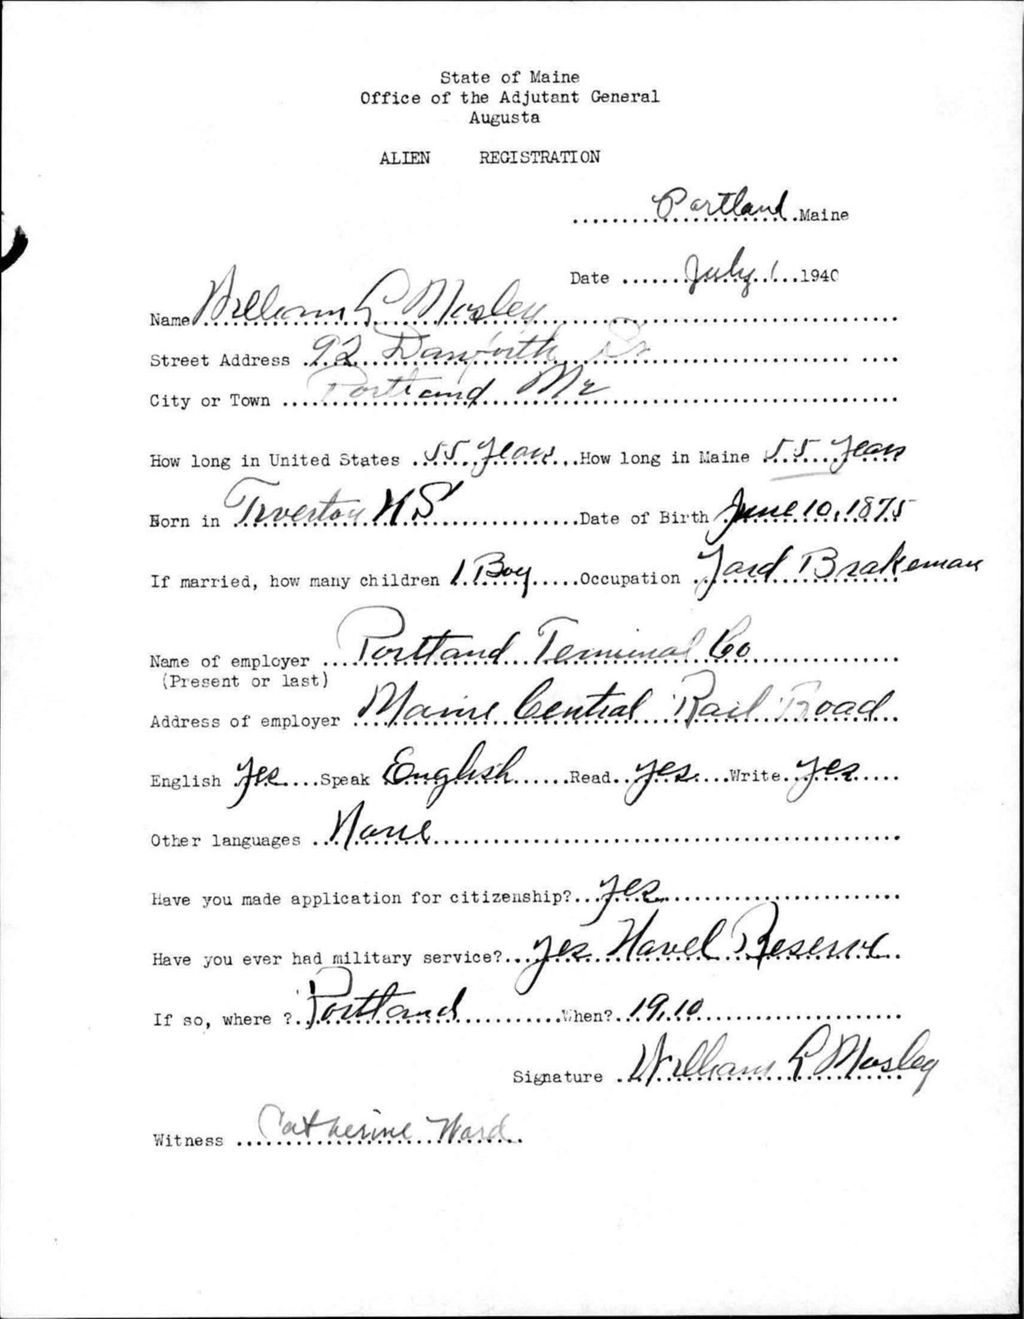 State of Maine
Office of the Adjutant General
Augusta
ALIEN REGISTRATION
Portland Maine
Date July 1 1940
Name William L Mosley
Street Address 92 Danforth
City or Town Portland Me
How long in United States 55 years How long in Maine 55 years
Born in Tiverton N S Date of Birth June 10, 1875
If married, how many children 1 Boy Occupation Yard Brakeman
Name of employer Portland Terminal Co
(Present or last)
Address of employer Maine Central Rail Road
English Yes Speak English Read yes Write yes
Other languages None
Have you made application for citizenship? yes
Have you ever had military service? yes Navel Reserve
If so, where ? Portland When? 19,10
Signature William L Mosley
Witness Catherine Ward